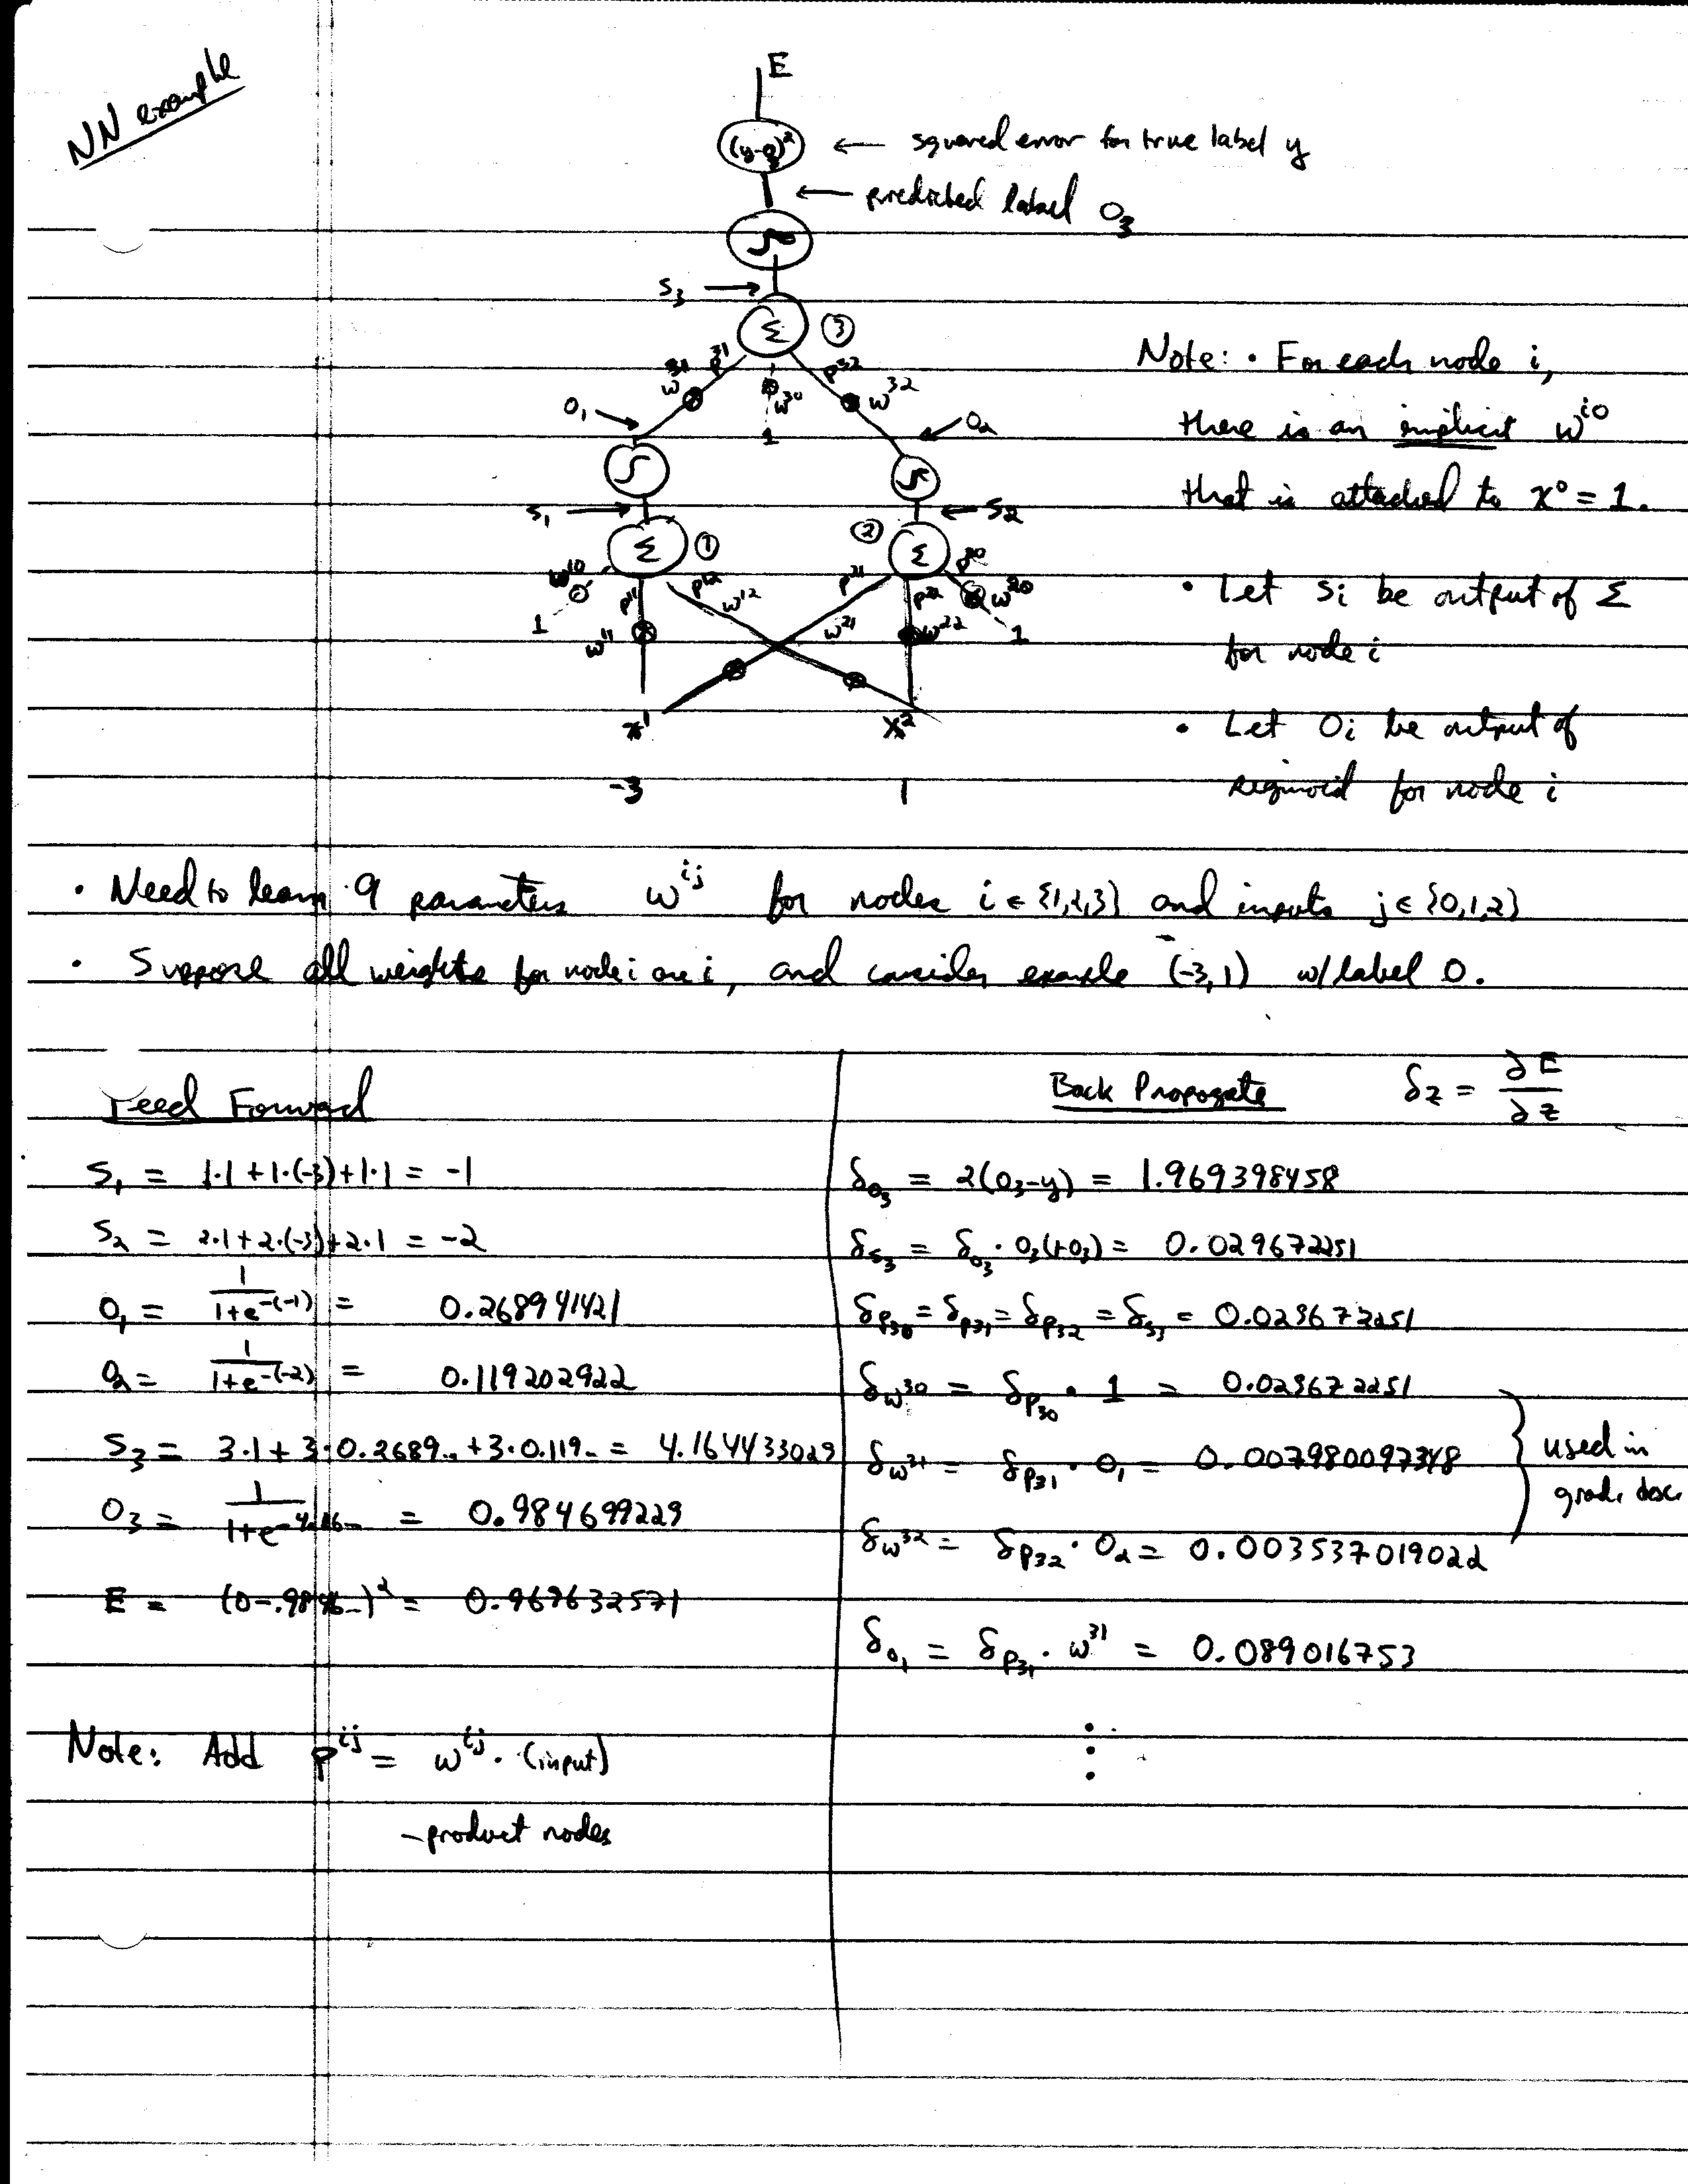 NN example
E
(y-o₃)² ← squared error for true label y
← predicted label o₃
S₃ →
Σ ③
w³¹ p³¹ w³⁰ p³² w³²
o₁ 1 o₂
S₁ → ← S₂
Σ ① ② Σ
w¹⁰ p¹¹ p¹² w¹² p²¹ p²² p²⁰ w²⁰
1 w¹¹ w²¹ w²² 1
x¹ x²
-3 1
Note: • For each node i,
there is an implicit w^{i0}
that is attached to x⁰ = 1.
• Let Si be output of Σ
for node i
• Let Oi be output of
sigmoid for node i
• Need to learn 9 parameters w^{ij} for nodes i ∈ {1,2,3} and inputs j ∈ {0,1,2}
• Suppose all weights for node i are i, and consider example (-3,1) w/ label 0.
Feed Forward
S₁ = 1·1 + 1·(-3) + 1·1 = -1
S₂ = 2·1 + 2·(-3) + 2·1 = -2
O₁ = 1/(1+e^{-(-1)}) = 0.268941421
O₂ = 1/(1+e^{-(-2)}) = 0.119202922
S₃ = 3·1 + 3·0.2689.. + 3·0.119.. = 4.164433029
O₃ = 1/(1+e^{-4.16..}) = 0.984699229
E = (0-.9846..)² = 0.969632571
Note: Add p^{ij} = w^{ij} · (input)
- product nodes
Back Propogate δz = ∂E/∂z
δ_{O₃} = 2(O₃-y) = 1.969398458
δ_{S₃} = δ_{O₃} · O₃(1-O₃) = 0.029672251
δ_{P30} = δ_{P31} = δ_{P32} = δ_{S3} = 0.029672251
δ_{w³⁰} = δ_{P30} · 1 = 0.029672251
δ_{w³¹} = δ_{P31} · O₁ = 0.007980097348
δ_{w³²} = δ_{P32} · O₂ = 0.003537019022
used in
grad. desc.
δ_{O₁} = δ_{P31} · w³¹ = 0.089016753
⋮